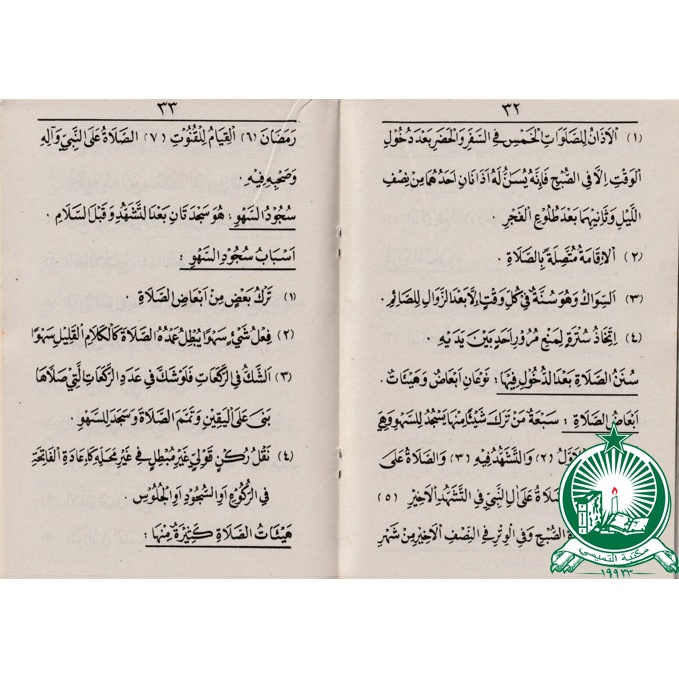 ٣٢
(١) اَلْاَذَانُ لِلصَّلَوَاتِ الْخَمْسِ فِي السَّفَرِ وَالْحَضَرِ بَعْدَ دُخُوْلِ
الْوَقْتِ اِلَّا فِي الصُّبْحِ فَاِنَّهُ يُسَنُّ لَهُ اَذَانَانِ اَحَدُهُمَا مِنْ نِصْفِ
اللَّيْلِ وَثَانِيْهِمَا بَعْدَ طُلُوْعِ الْفَجْرِ .
(٢) اَلْاِقَامَةُ مُتَّصِلَةً بِالصَّلَاةِ .
(٣) اَلسِّوَاكُ وَهُوَ سُنَّةٌ فِيْ كُلِّ وَقْتٍ اِلَّا بَعْدَ الزَّوَالِ لِلصَّائِمِ .
(٤) اِتِّخَاذُ سُتْرَةٍ لِمَنْعِ مُرُوْرِ اَحَدٍ بَيْنَ يَدَيْهِ .
سُنَنُ الصَّلَاةِ بَعْدَ الدُّخُوْلِ فِيْهَا : نَوْعَانِ اَبْعَاضٌ وَهَيْئَاتٌ .
اَبْعَاضُ الصَّلَاةِ : سَبْعَةٌ مَنْ تَرَكَ شَيْئًا مِنْهَا يَسْجُدُ لِلسَّهْوِ وَهِيَ
الْاَوَّلُ (٢) وَالتَّشَهُّدُ فِيْهِ (٣) وَالصَّلَاةُ عَلَى
عَلَى اٰلِ النَّبِيِّ فِي التَّشَهُّدِ الْاَخِيْرِ (٥)
الصُّبْحِ وَفِي الْوِتْرِ فِي النِّصْفِ الْاَخِيْرِ مِنْ شَهْرِ
مكتبة التسيسي
١٩٩٣٣
٣٣
رَمَضَانَ (٦) اَلْقِيَامُ لِلْقُنُوْتِ (٧) اَلصَّلَاةُ عَلَى النَّبِيِّ وَاٰلِهِ
وَصَحْبِهِ فِيْهِ .
سُجُوْدُ السَّهْوِ : هُوَ سَجْدَتَانِ بَعْدَ التَّشَهُّدِ وَقَبْلَ السَّلَامِ .
اَسْبَابُ سُجُوْدِ السَّهْوِ :
(١) تَرْكُ بَعْضٍ مِنْ اَبْعَاضِ الصَّلَاةِ .
(٢) فِعْلُ شَيْءٍ سَهْوًا يُبْطِلُ عَمْدُهُ الصَّلَاةَ كَالْكَلَامِ الْقَلِيْلِ سَهْوًا
(٣) اَلشَّكُّ فِي الرَّكَعَاتِ فَلَوْ شَكَّ فِيْ عَدَدِ الرَّكَعَاتِ الَّتِيْ صَلَّاهَا
بَنَى عَلَى الْيَقِيْنِ وَتَمَّمَ الصَّلَاةَ وَسَجَدَ لِلسَّهْوِ .
(٤) نَقْلُ رُكْنٍ قَوْلِيٍّ غَيْرِ مُبْطِلٍ فِيْ غَيْرِ مَحَلِّهِ كَاِعَادَةِ الْفَاتِحَةِ
فِي الرُّكُوْعِ اَوِ السُّجُوْدِ اَوِ الْجُلُوْسِ
هَيْئَاتُ الصَّلَاةِ كَثِيْرَةٌ مِنْهَا :